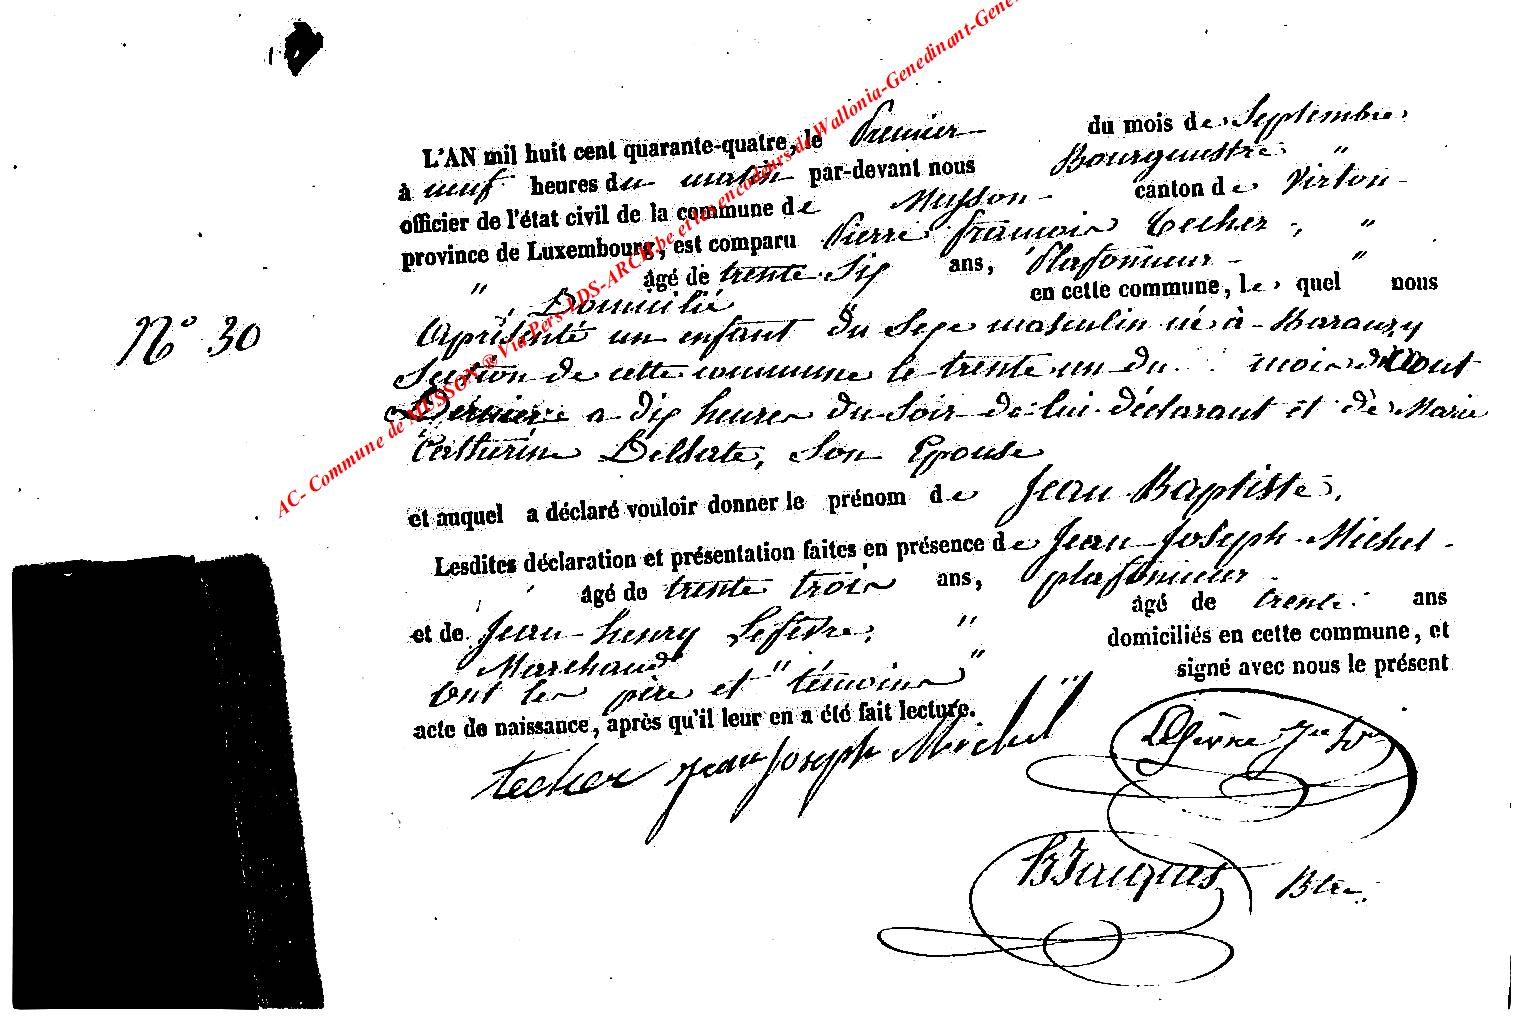 AC- Commune de MUSSON ® Via Pers-LDS-ARCH.be et les encodeurs de Wallonia-Genedinant-Gene
L'AN mil huit cent quarante-quatre, le Premier du mois de Septembre
à neuf heures du matin par-devant nous Bourgmestre "
officier de l'état civil de la commune de Musson - canton de Virton -
province de Luxembourg, est comparu Pierre francois Techer, "
" âgé de trente Six ans, Plafonneur - "
Domicilié en cette commune, le quel nous
N° 30
a présenté un enfant du Sexe masculin né à - Baranzy
Section de cette commune le trente un du mois d'aout
Dernier a dix heures du Soir de lui déclarant et de Marie
Catherine Delsate, Son Epouse
et auquel a déclaré vouloir donner le prénom de Jean Baptiste.
Lesdites déclaration et présentation faites en présence de Jean Joseph Michel -
âgé de trente trois ans, plafonneur -
et de Jean henry Lefevre, " âgé de trente ans
Marchand " " domiciliés en cette commune, et
ont les père et témoins signé avec nous le présent
acte de naissance, après qu'il leur en a été fait lecture.
techer Jean Joseph Michel Lefèvre
Jacques